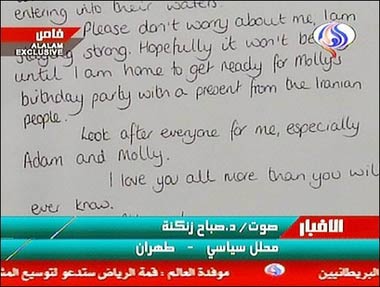 entering into their waters.
خاص
ALALAM
EXCLUSIVE
Please don't worry about me, I am
staying strong. Hopefully it won't be
until I am home to get ready for Molly's
birthday party with a present from the Iranian
people.
Look after everyone for me, especially
Adam and Molly.
I love you all more than you will
ever know.
الاخبار
صوت / د.صباح زنكنة
محلل سياسي - طهران
البريطانيين
موفدة العالم : قمة الرياض ستدعو لتوسيع